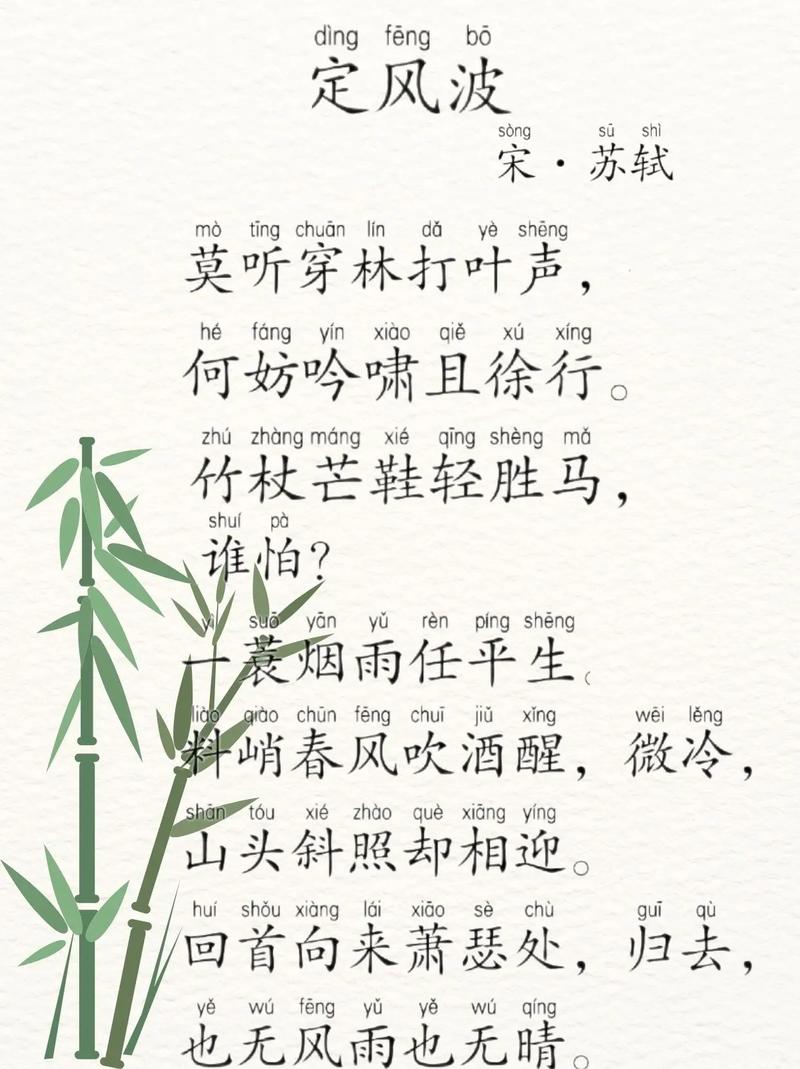 dìng fēng bō
定风波
sòng sū shì
宋·苏轼
mò tīng chuān lín dǎ yè shēng
莫听穿林打叶声，
hé fáng yín xiào qiě xú xíng
何妨吟啸且徐行。
zhú zhàng máng xié qīng shèng mǎ
竹杖芒鞋轻胜马，
shuí pà
谁怕？
yì suō yān yǔ rèn píng shēng
一蓑烟雨任平生。
liào qiào chūn fēng chuī jiǔ xǐng wēi lěng
料峭春风吹酒醒，微冷，
shān tóu xié zhào què xiāng yíng
山头斜照却相迎。
huí shǒu xiàng lái xiāo sè chù guī qù
回首向来萧瑟处，归去，
yě wú fēng yǔ yě wú qíng
也无风雨也无晴。